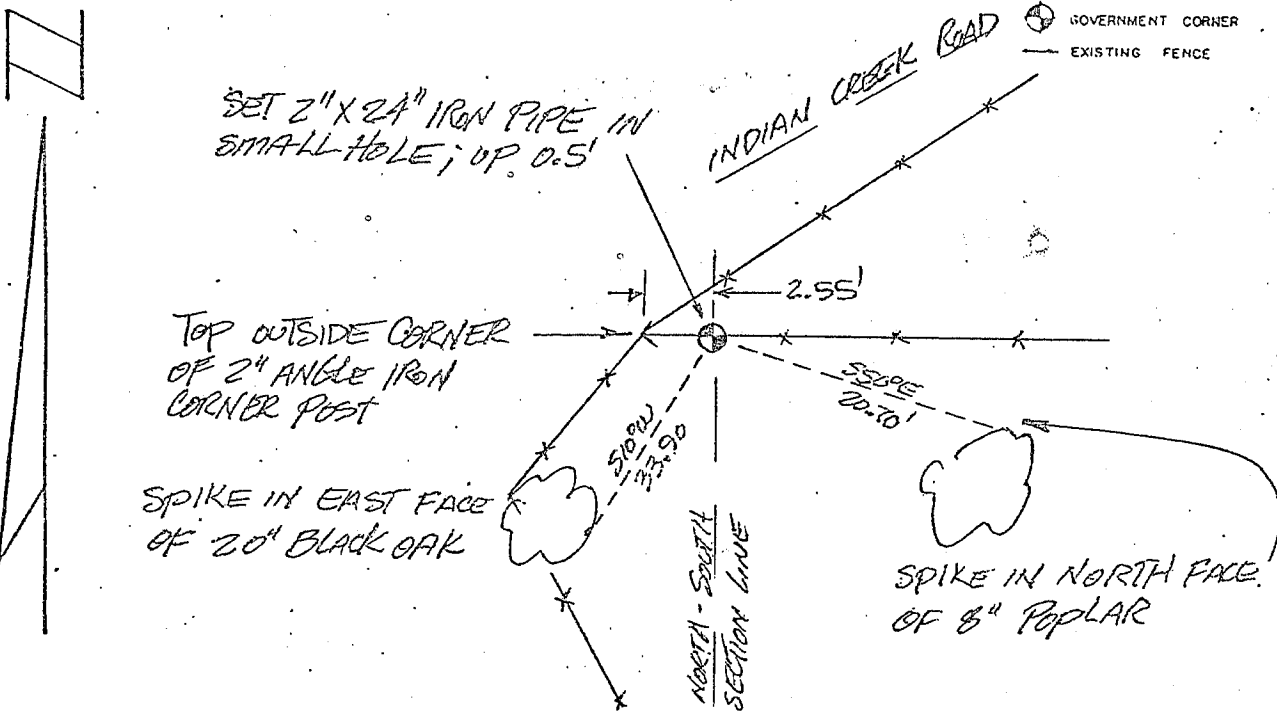 N
GOVERNMENT CORNER
EXISTING FENCE
INDIAN CREEK ROAD
SET 2" X 24" IRON PIPE IN
SMALL HOLE; UP 0.5'
2.55'
TOP OUTSIDE CORNER
OF 2" ANGLE IRON
CORNER POST
20.70'
S10°W
33.90
SPIKE IN EAST FACE
OF 20" BLACK OAK
NORTH - SOUTH
SECTION LINE
SPIKE IN NORTH FACE
OF 8" POPLAR